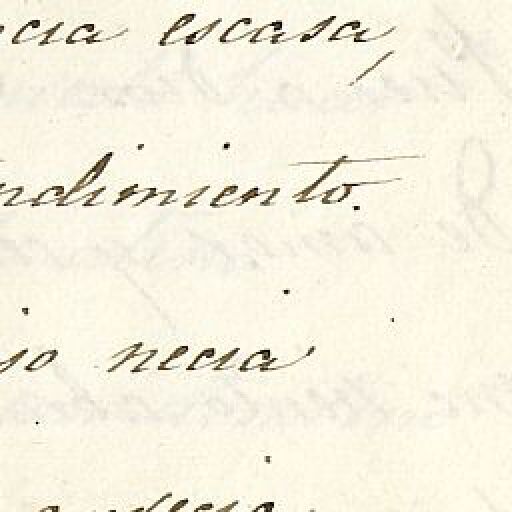 cia escasa,
ndimiento.
so necia